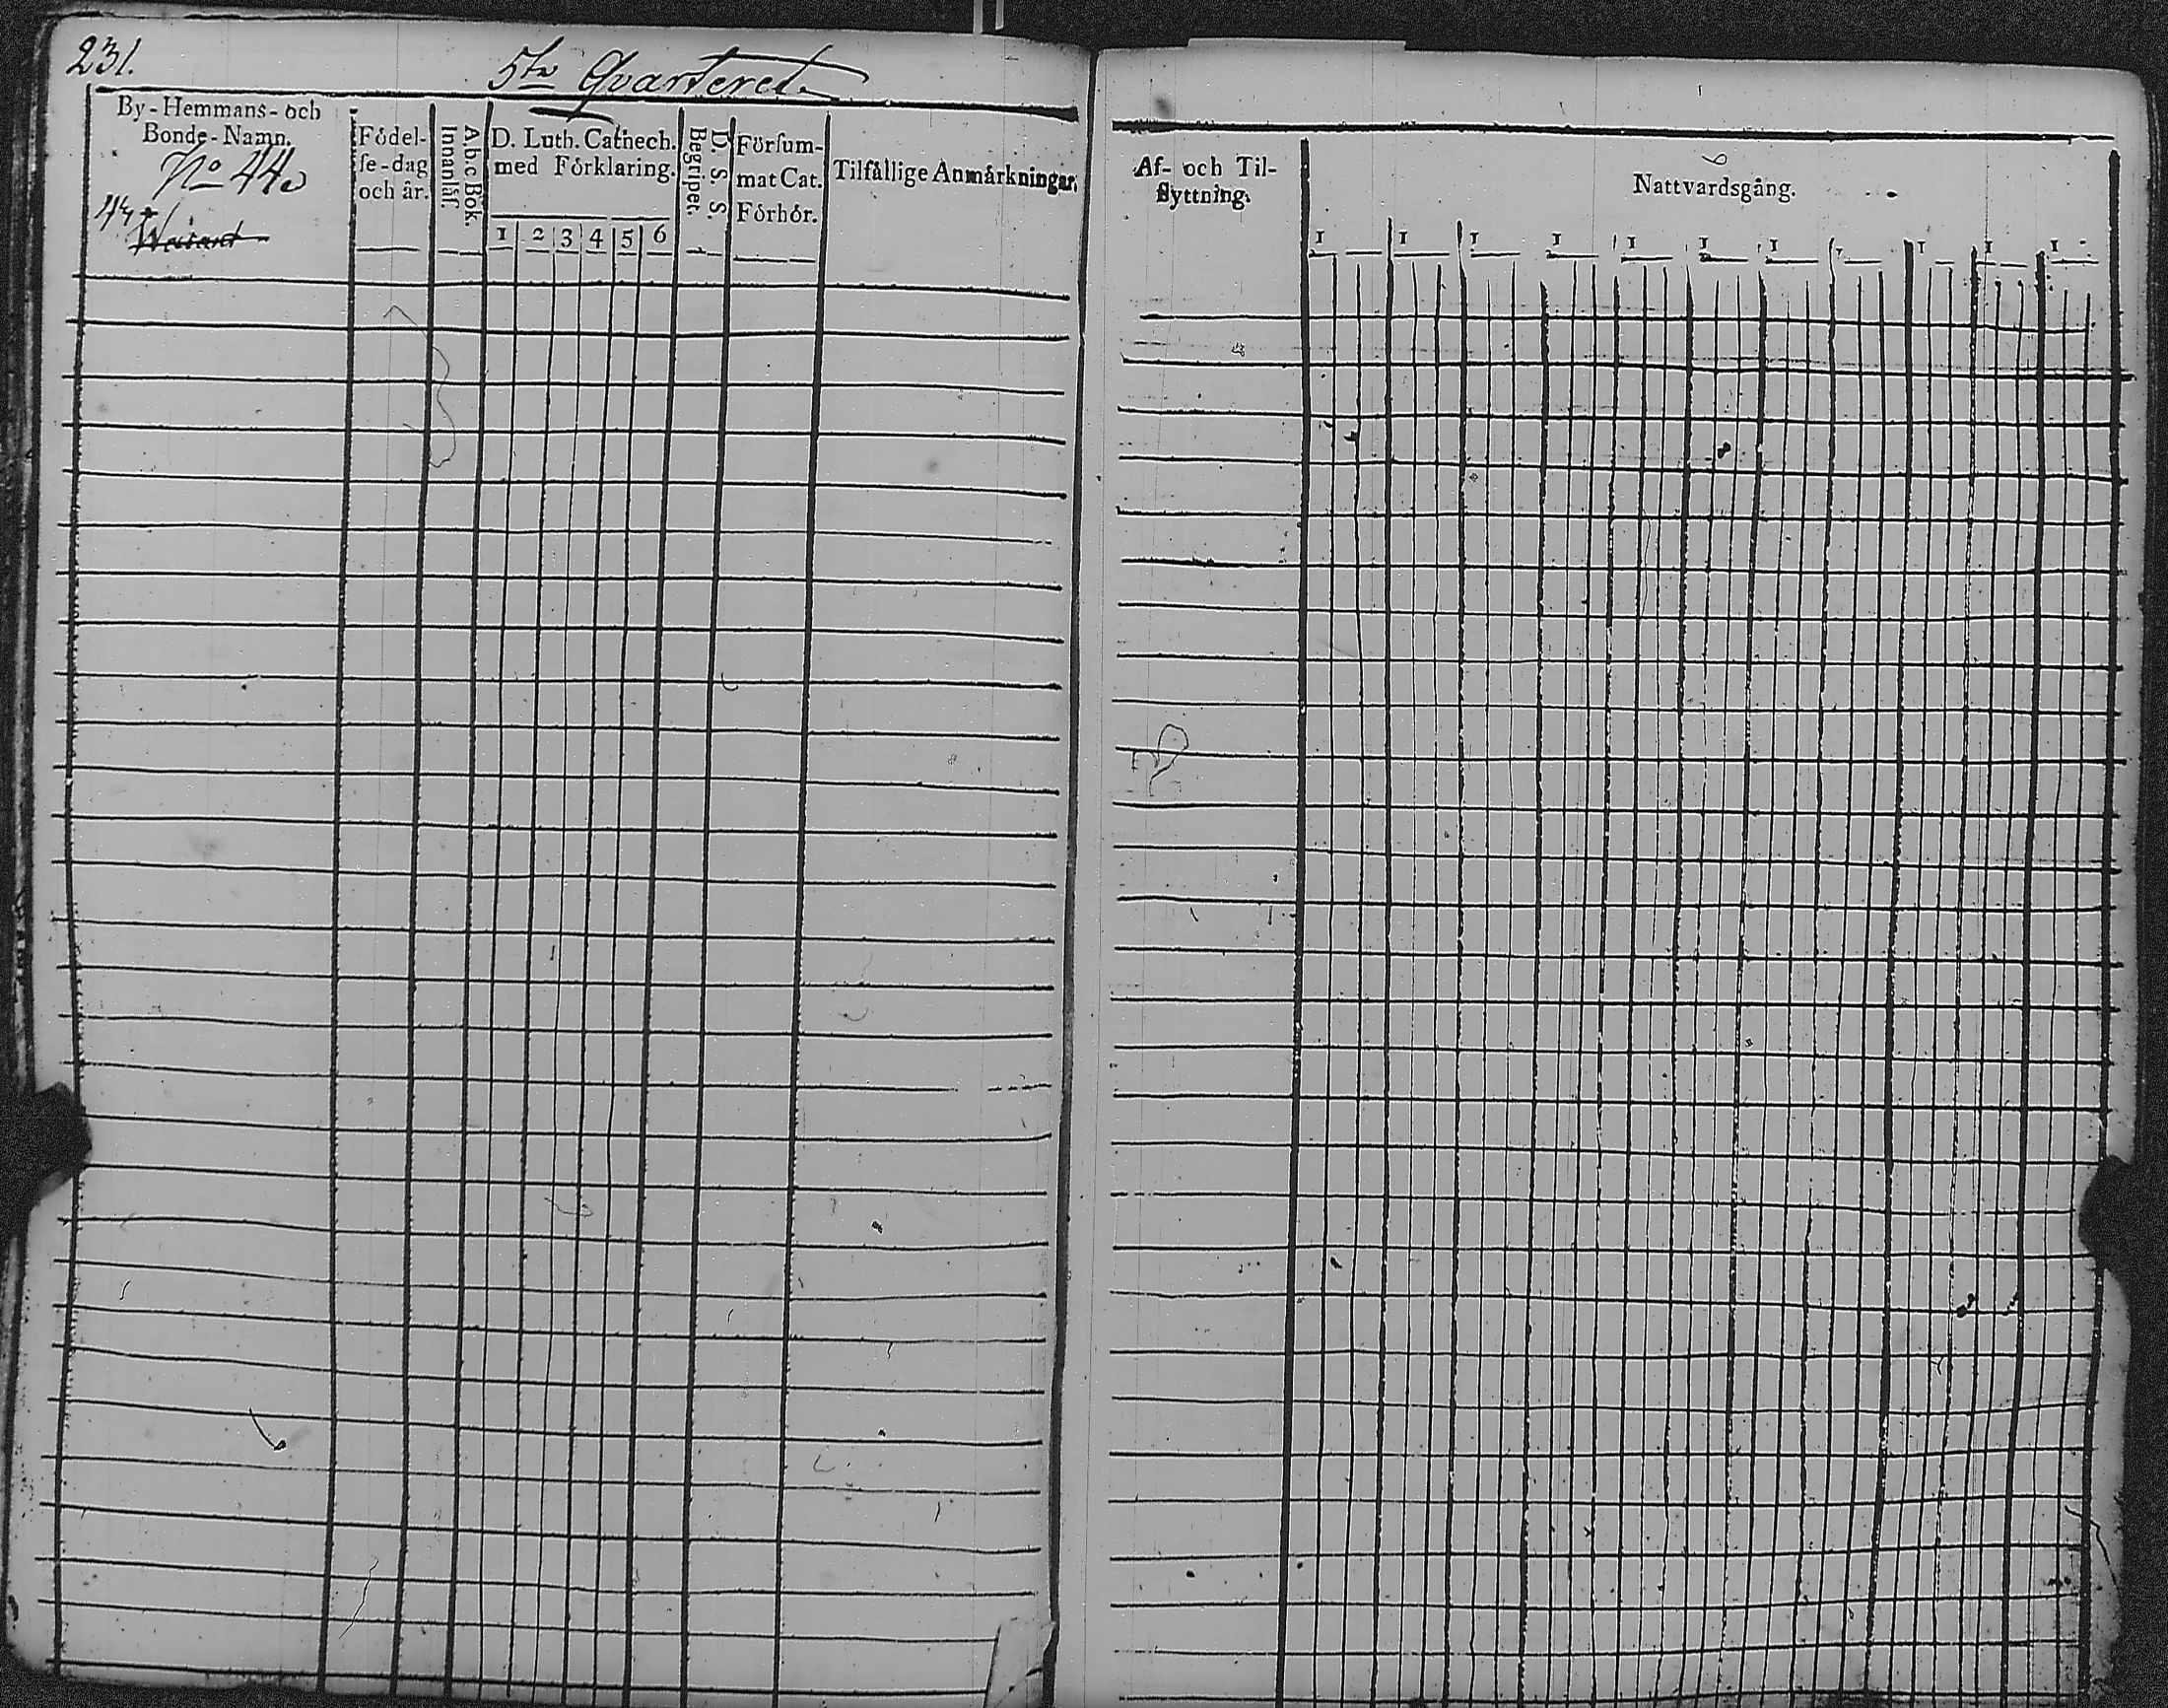 231.
5te Qvarteret
By-Hemmans- och
Bonde-Namn.
No 44.
Födel-
ſe-dag
och år.
A.b.c Bok.
Innanläſ.
D. Luth. Cathech.
med Förklaring.
1 2 3 4 5 6
D. S. S.
Begripet.
Förſum-
mat Cat.
Förhör.
Tilfällige Anmärkningar.
Af- och Til-
flyttning.
Nattvardsgång.
1 1 1 1 1 1 1 1 1 1